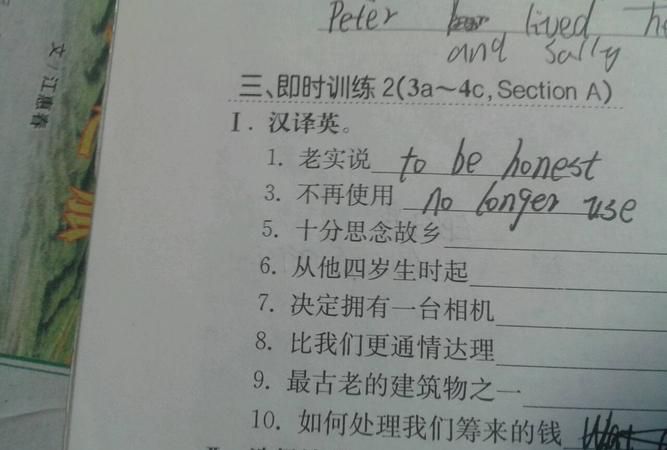 Peter lived
and Sally
三、即时训练 2(3a～4c, Section A)
Ⅰ. 汉译英。
1. 老实说 to be honest
3. 不再使用 no longer use
5. 十分思念故乡
6. 从他四岁生时起
7. 决定拥有一台相机
8. 比我们更通情达理
9. 最古老的建筑物之一
10. 如何处理我们筹来的钱
文/江惠春